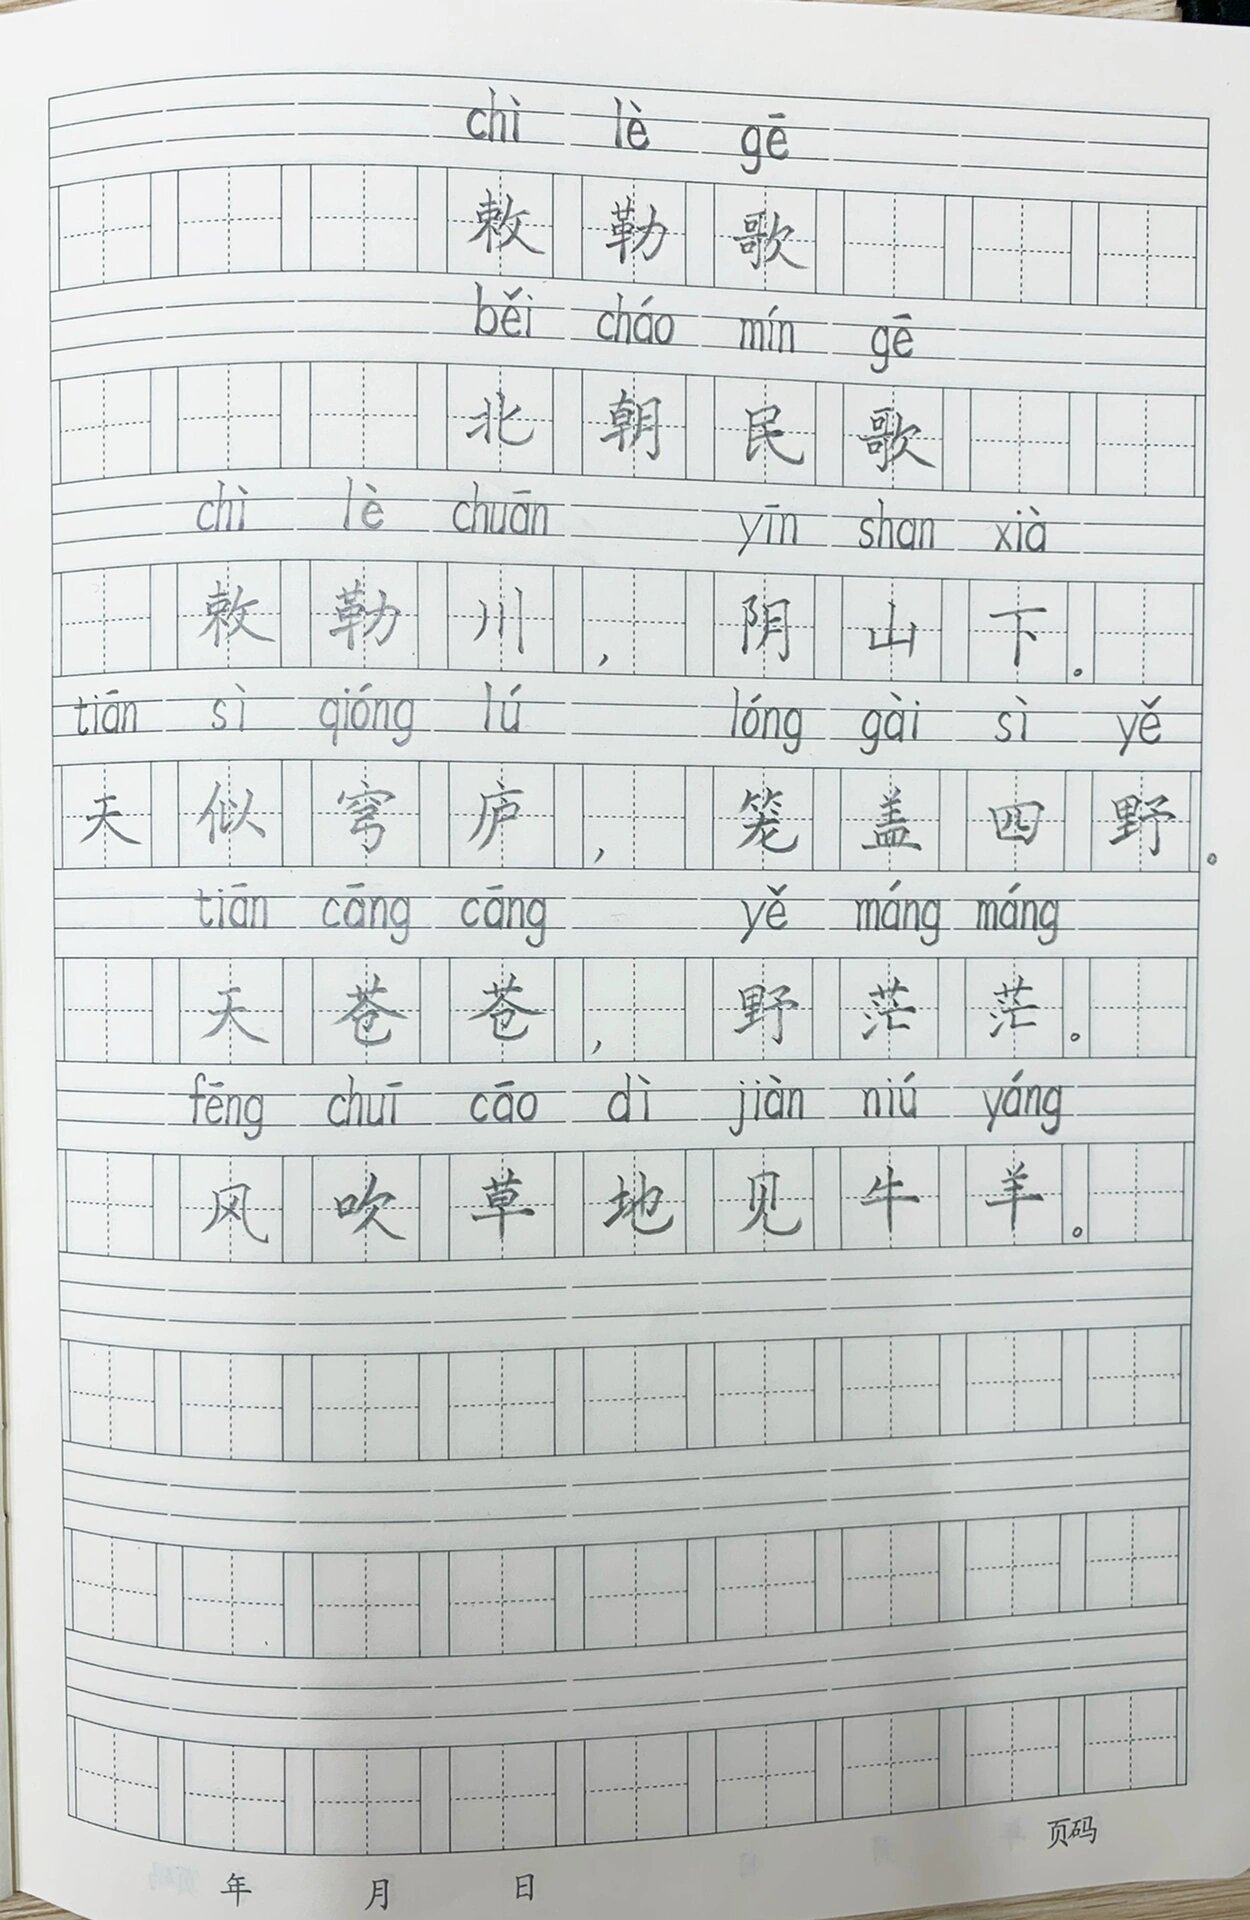 chì lè gē
敕勒歌
běi cháo mín gē
北朝民歌
chì lè chuān yīn shan xià
敕勒川，阴山下。
tiān sì qióng lú lóng gài sì yě
天似穹庐，笼盖四野。
tiān cāng cāng yě máng máng
天苍苍，野茫茫。
fēng chuī cāo dì jiàn niú yáng
风吹草地见牛羊。
页码
年 月 日